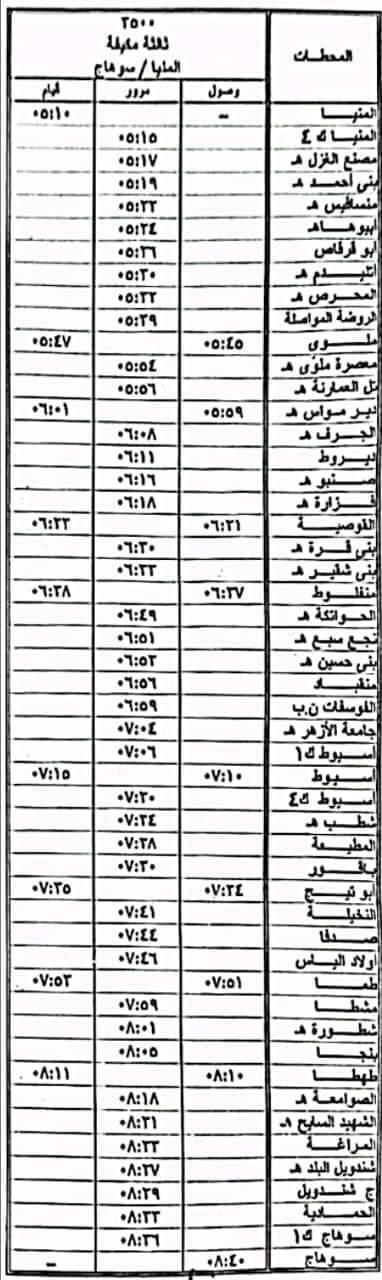 ٣٥٠٠
ثالثة مكيفة
المنيا / سوهاج
المحطات
وصول مرور قيام
المنيا – ٠٥:١٠
المنيا ك ٤ ٠٥:١٥
مصنع الغزل هـ ٠٥:١٧
بنى أحمد هـ ٠٥:١٩
منسافيس هـ ٠٥:٢٢
ابيوها هـ ٠٥:٢٤
ابو قرقاص ٠٥:٢٦
اتليدم هـ ٠٥:٣٠
المحرص هـ ٠٥:٣٣
الروضة المواصلة ٠٥:٣٩
ملوى ٠٥:٤٥ ٠٥:٤٧
معصرة ملوى هـ ٠٥:٥٤
تل العمارنة هـ ٠٥:٥٦
دير مواس هـ ٠٥:٥٩ ٠٦:٠١
الجرف هـ ٠٦:٠٨
ديروط ٠٦:١١
صنبو هـ ٠٦:١٦
فزارة هـ ٠٦:١٨
القوصية ٠٦:٢١ ٠٦:٢٢
بنى قرة هـ ٠٦:٣٠
بنى شقير هـ ٠٦:٣٣
منفلوط ٠٦:٣٧ ٠٦:٣٨
الحواتكة هـ ٠٦:٤٩
نجع سبع هـ ٠٦:٥١
بنى حسين هـ ٠٦:٥٣
منقباد ٠٦:٥٦
الفوسفات ن.ب ٠٦:٥٩
جامعة الأزهر هـ ٠٧:٠٤
أسيوط ك١ ٠٧:٠٦
أسيوط ٠٧:١٠ ٠٧:١٥
أسيوط ك٤ ٠٧:٢٠
شطب هـ ٠٧:٢٤
المطيعة ٠٧:٢٨
باقور ٠٧:٣٠
أبو تيج ٠٧:٣٤ ٠٧:٣٥
النخيلة ٠٧:٤١
صدفا ٠٧:٤٤
اولاد الياس ٠٧:٤٦
طما ٠٧:٥١ ٠٧:٥٣
مشطا ٠٧:٥٩
شطورة هـ ٠٨:٠١
بنجا ٠٨:٠٥
طهطا ٠٨:١٠ ٠٨:١١
الصوامعة هـ ٠٨:١٨
الشهيد السايح هـ ٠٨:٢١
المراغة ٠٨:٢٣
شندويل البلد هـ ٠٨:٢٧
ج شندويل ٠٨:٢٩
الحمادية ٠٨:٣٣
سوهاج ك١ ٠٨:٣٦
سوهاج ٠٨:٤٠ –